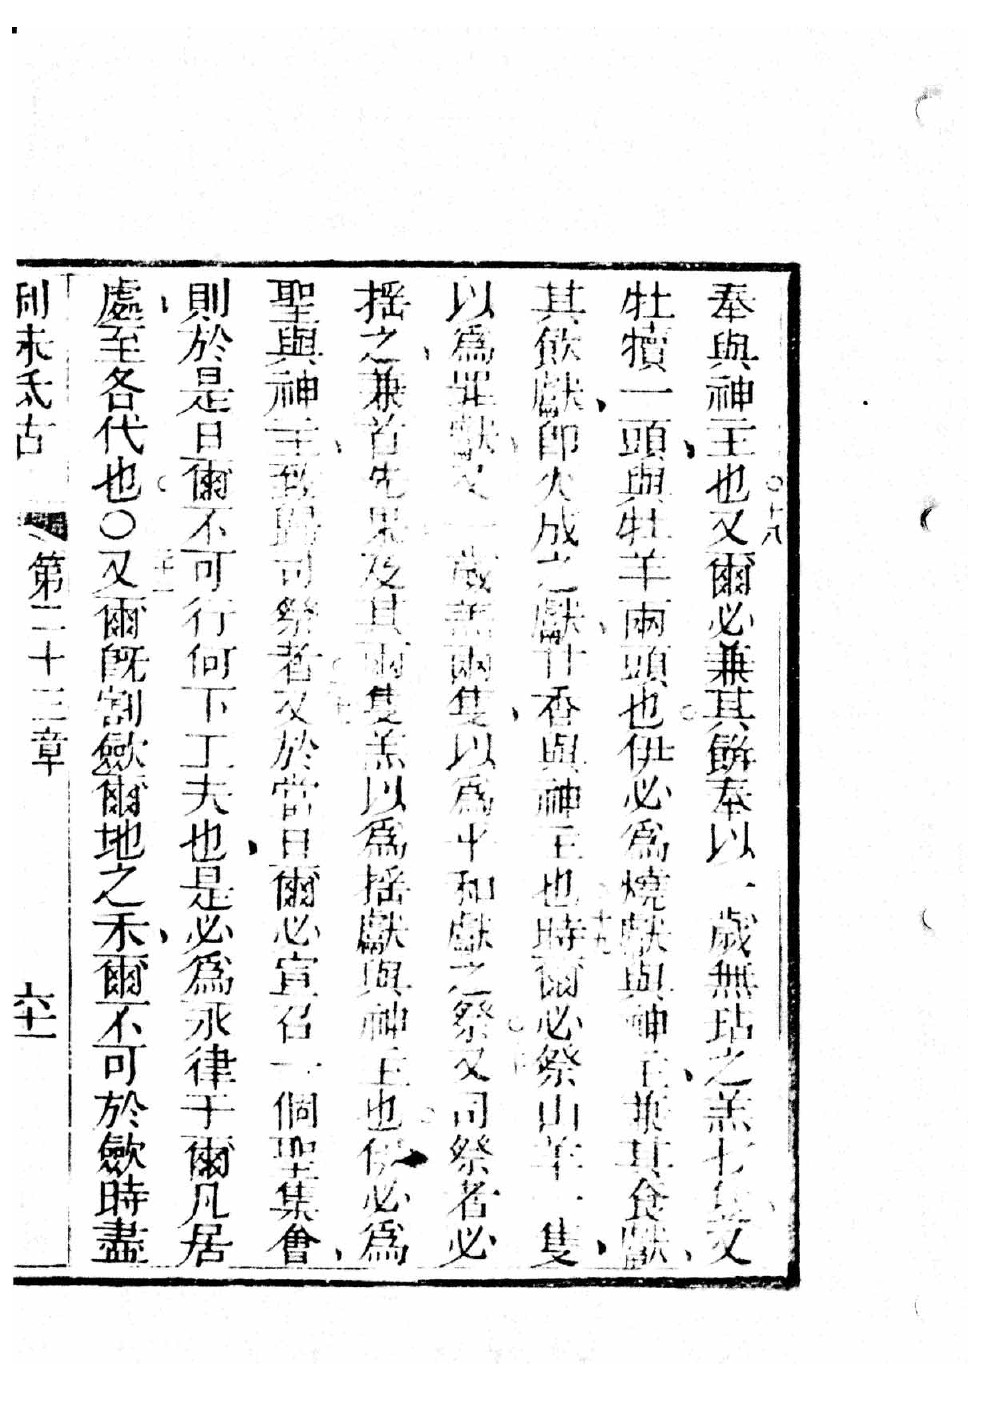 奉與神主也又爾必兼其餅奉以一歲無玷之羔七隻又
十八
牡犢一頭與牡羊兩頭也伊必為燒獻與神主兼其食獻
其飲獻即火成之獻甘香與神主也時爾必祭山羊一隻
十九
以為罪獻又一歲羔兩隻以為平和獻之祭又司祭者必
二十
搖之兼首先果及其兩隻羔以為搖獻與神主也伊必為
聖與神主致歸司祭者又於當日爾必宣召一個聖集會
則於是日爾不可行何下工夫也是必為永律于爾凡居
處至各代也○又爾既割斂爾地之禾爾不可於斂時盡
利未氏古 第二十三章 六十一